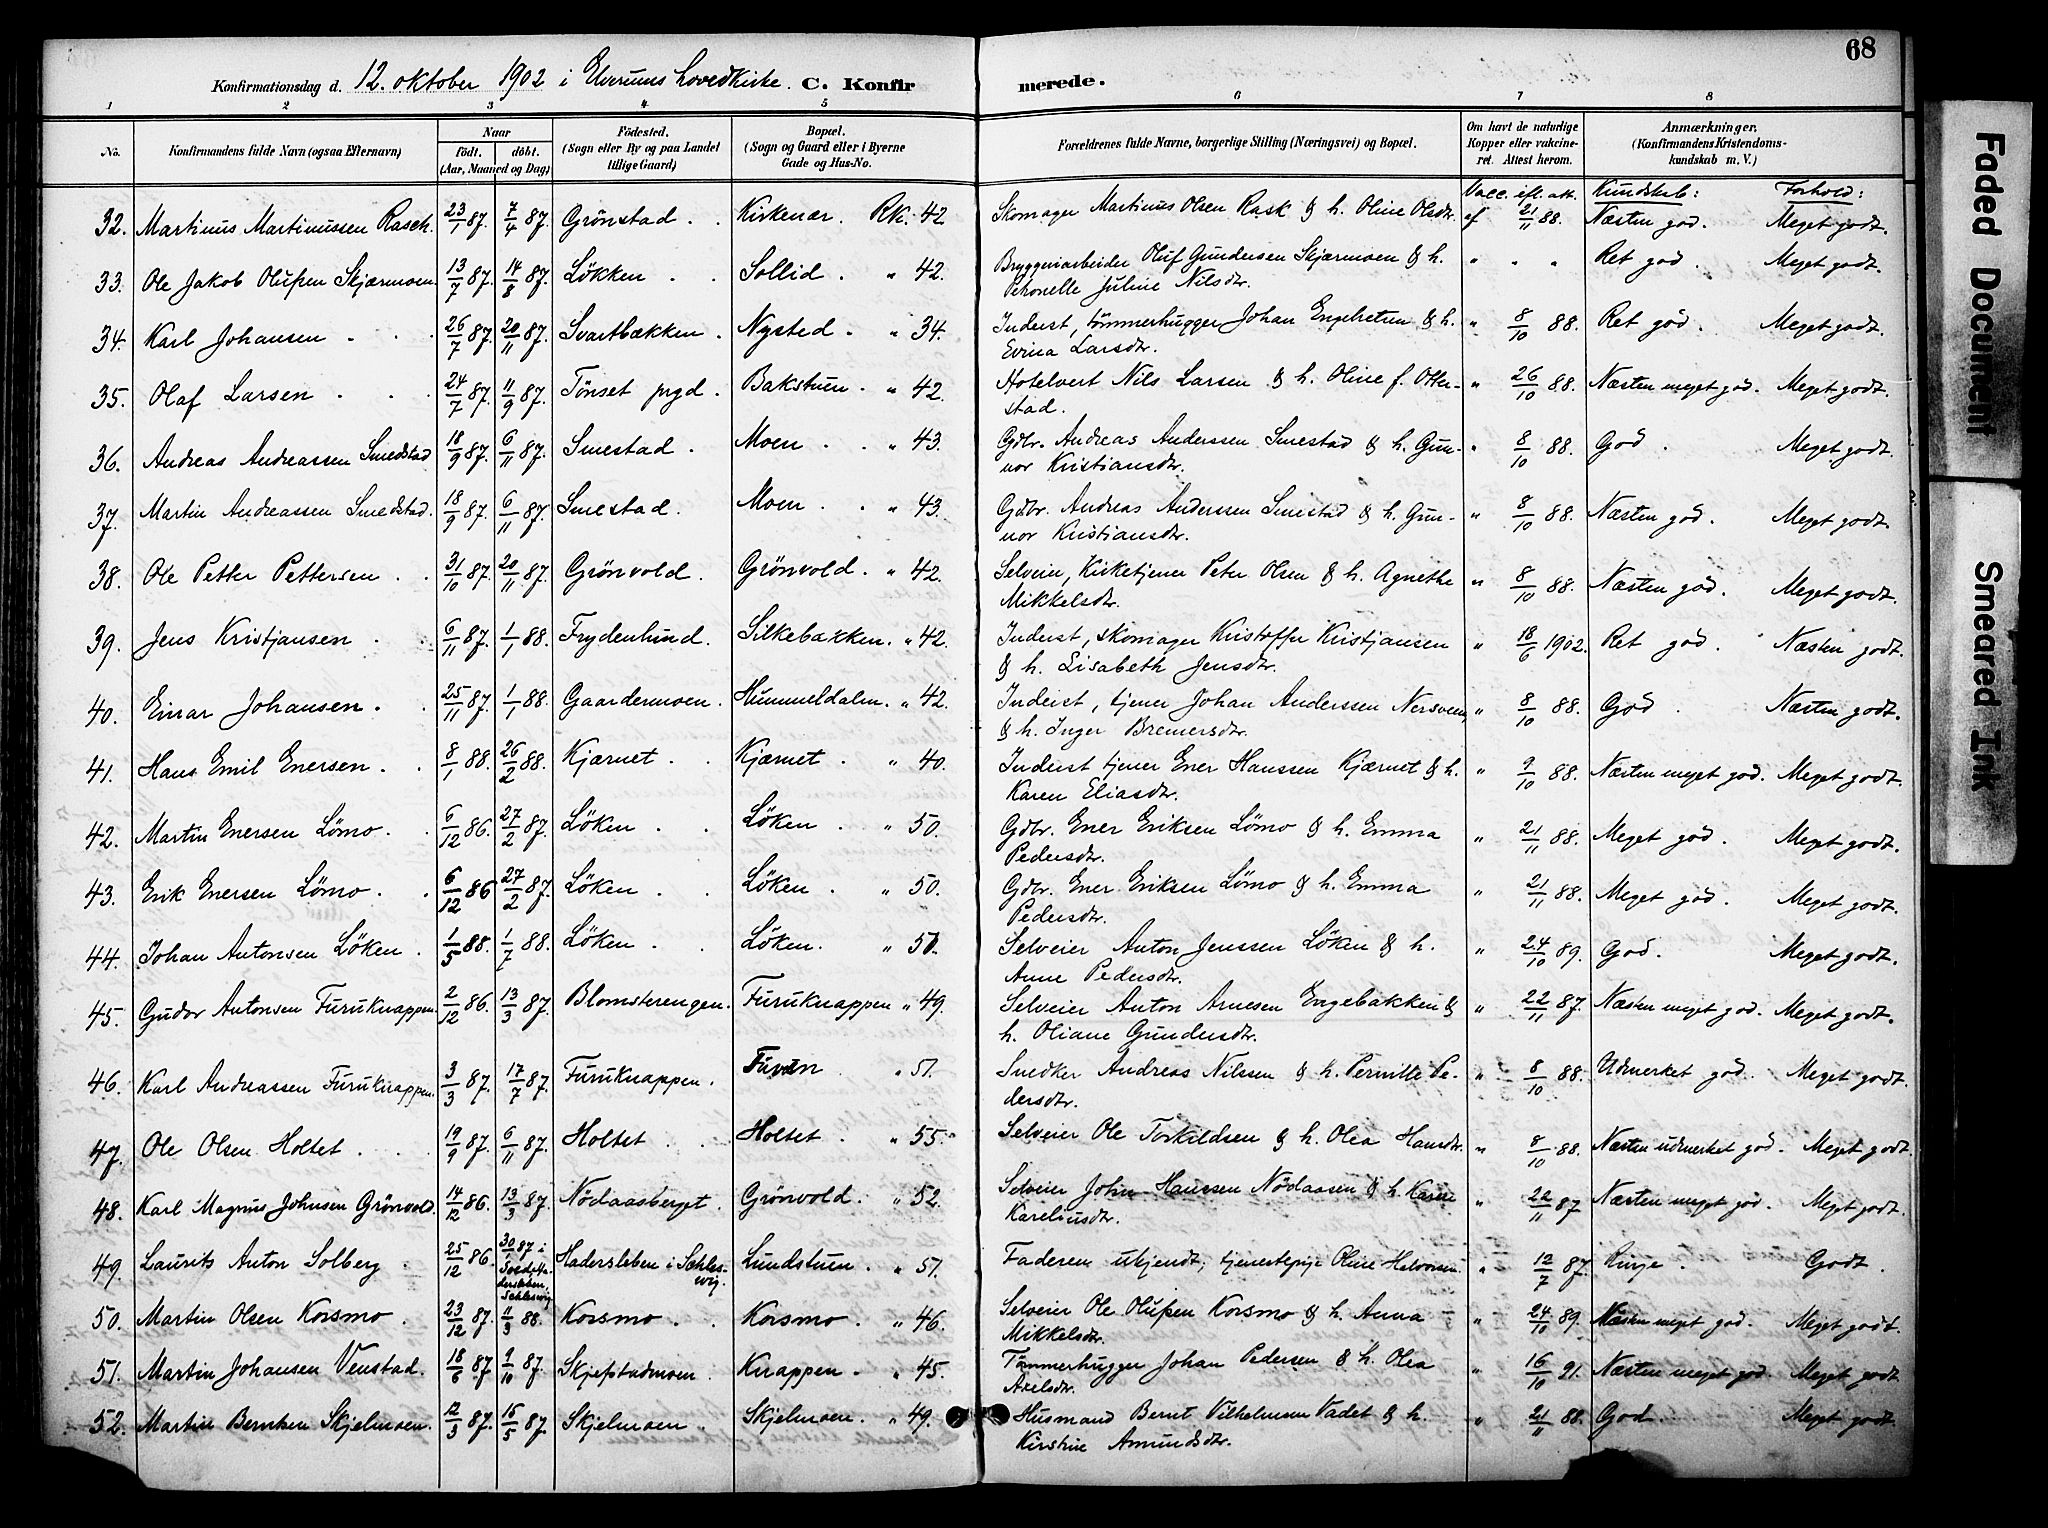 68
Konfirmationsdag d. 12. oktober 1902 i Elverums hovedkirke. C. Konfir merede.
1 2 3 4 5 6 7 8
No. Konfirmandens fulde Navn (ogsaa Efternavn) Naar födt. döbt. (Aar, Maaned og Dag) Födested. (Sogn eller By og paa Landet tillige Gaard) Bopæl. (Sogn og Gaard eller i Byerne Gade og Hus-No. Forældrenes fulde Navne, borgerlige Stilling (Næringsvei) og Bopæl. Om havt de naturlige Kopper eller vakcineret. Attest herom. Anmærkninger. (Konfirmandens Kristendomskundskab m. V.)
Vacc. efl. att. Kundskab: Forhold:
32. Martinus Martinussen Rasch. 23/1 87. 7/4 87. Grönstad. Kirkenær. Rk. 42 Skomager Martinus Olsen Rask & h. Oline Olsdtr. af 21/11 88. Næsten god. Meget godt.
33. Ole Jakob Olufsen Skjærmoen 13/7 87. 14/8 87. Lökken Sollid. " 42. Bryggeriarbeider Oluf Gundersen Skjærmoen & h. " " " Ret god. Meget godt.
Petronelle Juline Nilsdtr.
34. Karl Johansen 26/7 87. 20/11 87. Svartbækken Nysted. " 34. Inderst, tömmerhugger Johan Engebretsen & h. " 8/10 88. Ret god. Meget godt.
Evina Larsdtr.
35. Olaf Larsen 24/7 87. 11/9 87. Tönset prgd. Bakstuen. " 42. Hotelvert Nils Larsen & h. Oline f. Otter- " 26/10 88. Næsten meget god. Meget godt.
stad.
36. Andreas Andreassen Smedstad 18/9 87. 6/11 87. Smestad. Moen. " 43. Gdbr. Andreas Anderssen Smestad & h. Gun- " 8/10 88. God. Meget godt.
nor Kristiansdtr.
37. Martin Andreassen Smedstad. 18/9 87. 6/11 87. Smestad. Moen. " 43. Gdbr. Andreas Anderssen Smestad & h. Gun- " 8/10 88. Næsten god. Meget godt.
nor Kristiansdtr.
38. Ole Petter Pettersen 31/10 87. 20/11 87. Grönvold. Grönvold. " 42. Selveier, Kirketjener Peter Olsen & h. Agnethe " 8/10 88. Næsten god. Meget godt.
Mikkelsdtr.
39. Jens Kristjansen 6/11 87. 1/1 88. Frydenlund. Silkebakken. " 42. Inderst, skomager Kristoffer Kristjansen " 18/6 1902. Ret god. Næsten godt.
& h. Lisabeth Jensdtr.
40. Einar Johansen. 25/11 87. 1/1 88. Gaardermoen. Hummeldalen. " 42. Inderst, tjener Johan Anderssen Nersveen " 8/10 88. God. Næsten godt.
& h. Inger Bremersdtr.
41. Hans Emil Enersen. 8/1 88. 26/2 88. Kjærnet. Kjærnet. " 40. Inderst tjener Ener Hanssen Kjærnet & h. " 9/10 88. Næsten meget god. Meget godt.
Karen Eliasdtr.
42. Martin Enersen Lömo. 6/12 86. 27/2 87. Löken. Löken. " 50. Gdbr. Ener Eriksen Lömo & h. Emma " 21/11 88. Meget god. Meget godt.
Pedersdtr.
43. Erik Enersen Lömo. 6/12 86 27/2 87. Löken. Löken. " 50. Gdbr. Ener Eriksen Lömo & h. Emma " 21/11 88. Meget god. Meget godt.
Pedersdtr.
44. Johan Antonsen Löken. 1/5 88. 1/7 88. Löken. Löken. " 51. Selveier Anton Jenssen Löken & h. " 24/10 89. God. Meget godt.
Anne Pedersdtr.
45. Gudor Antonsen Furuknappen. 2/12 86. 13/3 87. Blomsterengen. Furuknappen " 49. Selveier Anton Arnesen Engebakken & " 22/11 87. Næsten meget god. Meget godt.
h. Oliane Gundersdtr.
46. Karl Andreassen Furuknappen. 3/3 87. 17/7 87. Furuknappen. " 51. Snedker Andreas Nilssen & h. Pernille Pe- " 8/10 88. Udmerket god. Meget godt.
dersdtr.
47. Ole Olsen Holtet. 19/9 87. 6/11 87. Holtet. Holtet. " 55. Selveier Ole Torkildsen & h. Olea Hansdtr. " 8/10 88. Næsten udmerket god. Meget godt.
48. Karl Magnus Johnsen Grönvold. 14/12 86. 13/3 87. Nödaasberget. Grönvold. " 52. Selveier John Hanssen Nödaasen & h. Karen " 22/11 87 Næsten meget god. Meget godt.
Kareliusdtr.
49. Laurits Anton Solberg 25/12 86. 30/1 87 i Hadersleben i Schleswig. Lundstuen. " 51. Faderen ukjendt, tjenestepige Oline Halvorsen. " 12/7 87. Ringe. Godt.
50. Martin Olsen Korsmo. 23/12 87. 11/3 88. Korsmo. Korsmo. " 46. Selveier Ole Olufsen Korsmo & h. Anna " 24/10 89. Næsten meget god. Meget godt.
Mikkelsdtr.
51. Martin Johansen Venstad. 18/6 87. 9/10 87. Skjefstadmoen. Knappen. " 45. Tömmerhugger Johan Pedersen & h. Olea " 16/10 91. Næsten meget god. Meget godt
Axelsdtr.
52. Martin Berntsen Skjelmoen. 12/3 87. 15/5 87. Skjelmoen Skjelmoen. " 49. Husmand Bernt Vilhelmsen Vadet & h. " 21/11 88. God. Meget godt.
Kirstine Amundsdtr.
Faded Document
Smeared Ink